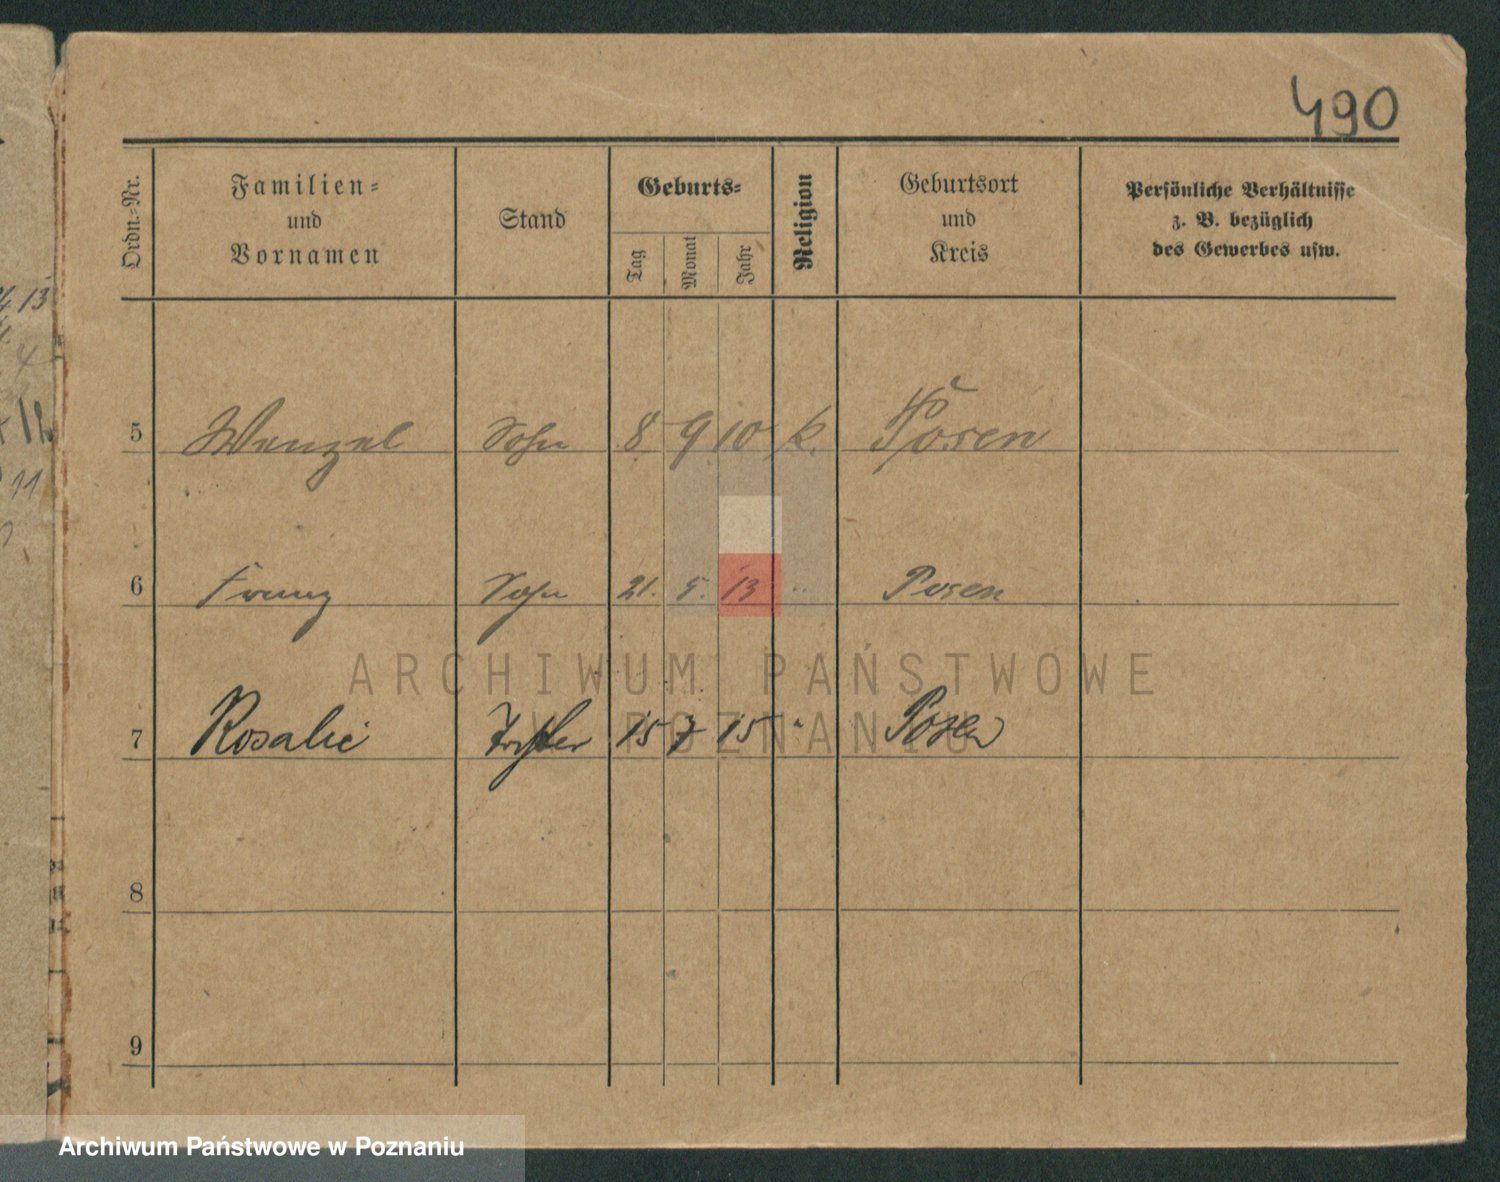 490
Ordn.-Nr.
Familien-
und
Vornamen
Stand
Geburts-
Tag
Monat
Jahr
Religion
Geburtsort
und
Kreis
Persönliche Verhältnisse
z. B. bezüglich
des Gewerbes usw.
13
4
11
5 Wenzel Sohn 8 9 10 k. Posen
6 Franz Sohn 21. 5. 13 " Posen
ARCHIWUM PAŃSTWOWE
W POZNANIU
7 Rosalie Tochter 15 7 15 " Posen
8
9
Archiwum Państwowe w Poznaniu